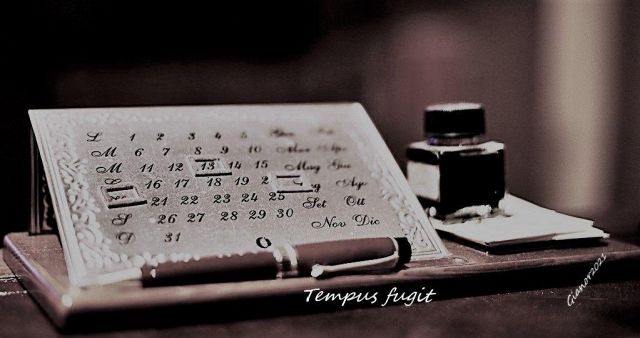 L 1 2 3 4 5
M 6 7 8 9 10
M 11 12 13 14 15 Mag Giu
16 17 18 19 Ago
21 22 23 24 25 Set Ott
S 26 27 28 29 30 Nov Dic
D 31
Tempus fugit
Gianor2021